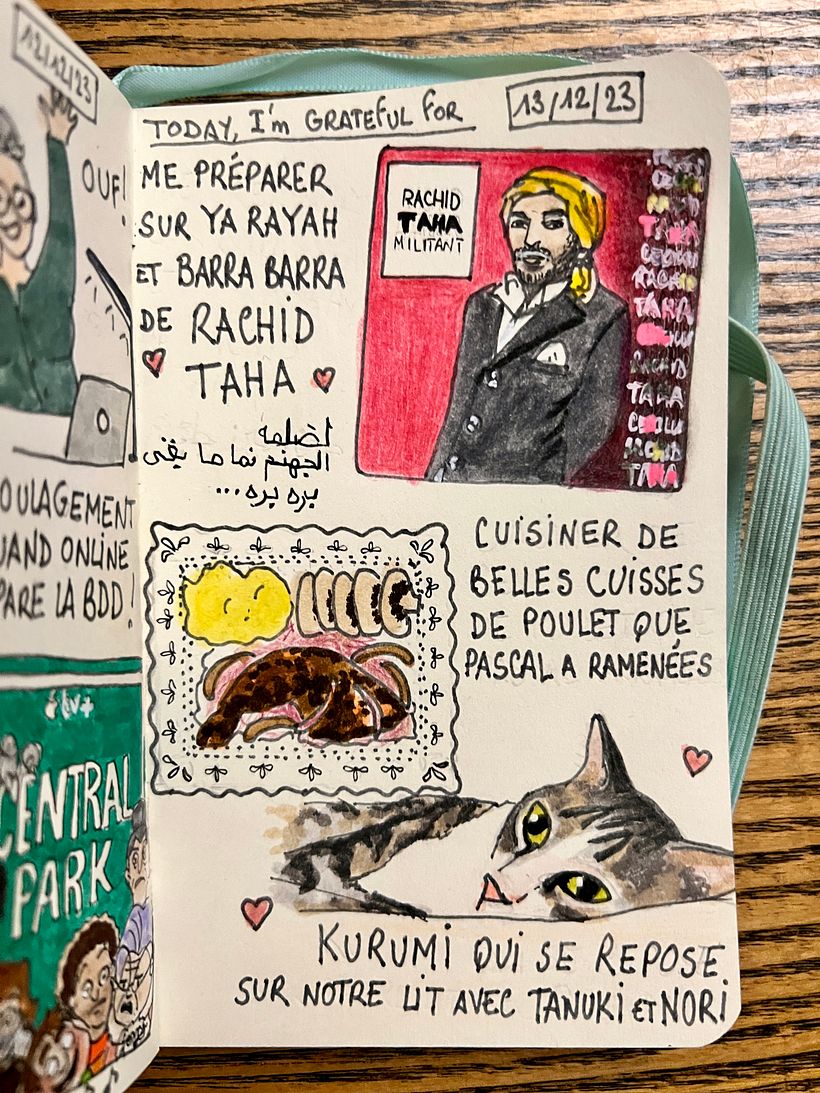 12/12/23
OUF!
OULAGEMENT
UAND ONLINE
PARE LA BDD!
tv+
CENTRAL
PARK
TODAY, I'm GRATEFUL FOR
13/12/23
ME PRÉPARER
SUR YA RAYAH
ET BARRA BARRA
DE RACHID
TAHA
RACHID
TAHA
MILITANT
TAHA
RACHID
TAHA
RACHID
TAHA
TAHA
الجهنم نما ما يقى
بره بره...
CUISINER DE
BELLES CUISSES
DE POULET QUE
PASCAL A RAMENÉES
KURUMI QUI SE REPOSE
SUR NOTRE LIT AVEC TANUKI ET NORI